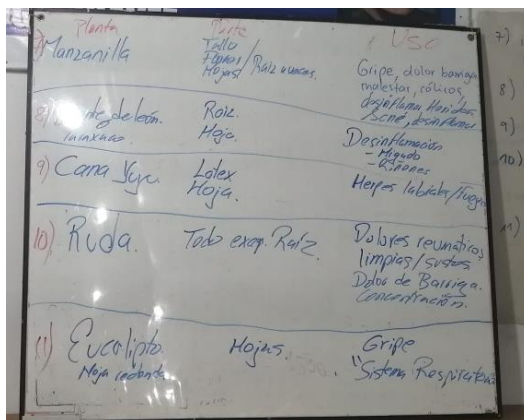 Planta Parte Uso
7) Manzanilla
Tallo
Flores
Hojas / Raiz
Gripe, dolor barriga
malestar, cólicos,
desinflama
Acné, desinflama
8) Diente de león.
Raiz.
Hoja.
Desinflamación
- Higado
- Riñones
9) Cana
Latex
Hoja.
Herpes labiales/fuegos
10) Ruda. Todo excep. Raiz.
Dolores reumaticos,
limpias/sustos
Dolor de Barriga.
Concentración.
11) Eucalipto
Hoja redonda
Hojas
Gripe
"Sistema Respiratorio
7)
8)
9)
10)
11)